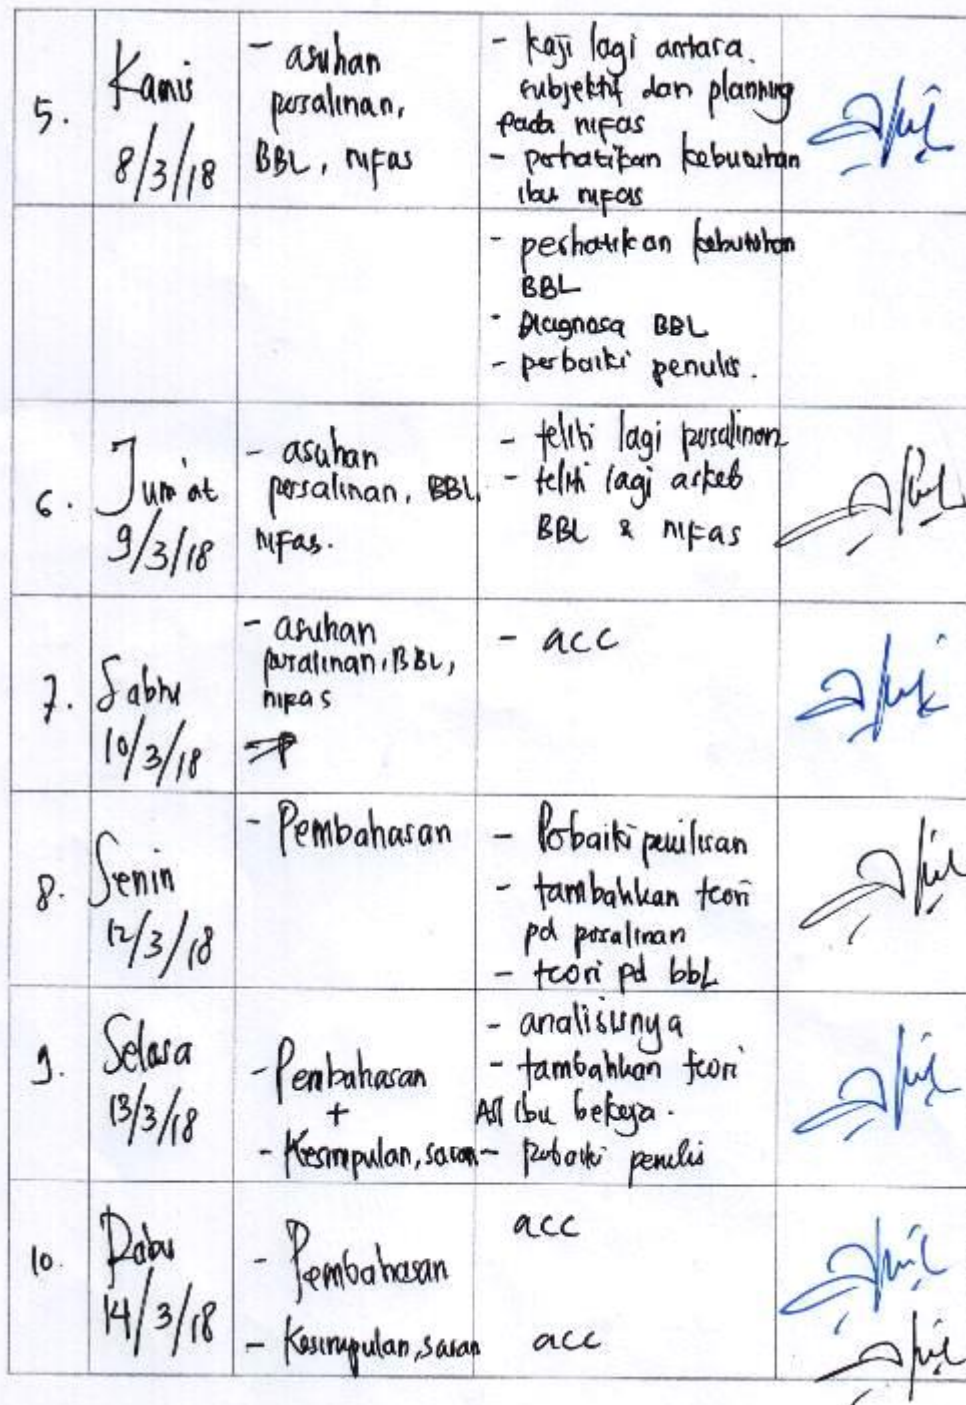 5.
Kamis
8/3/18
- asuhan
persalinan,
BBL, nifas
- kaji lagi antara
subjektif dan planning
pada nifas
- perhatikan kebutuhan
ibu nifas
- perhatikan kebutuhan
BBL
- Diagnosa BBL
- perbaiki penulis.
6.
Jum'at
9/3/18
- asuhan
persalinan, BBL,
nifas.
- teliti lagi persalinan
- teliti lagi askeb
BBL & nifas
7.
Sabtu
10/3/18
- asuhan
persalinan, BBL,
nifas
- acc
8.
Senin
12/3/18
- Pembahasan
- Perbaiki penilisan
- tambahkan teori
pd persalinan
- teori pd bbL
9.
Selasa
13/3/18
- Pembahasan
+
- Kesimpulan, saran
- analisisnya
- tambahkan teori
ASI ibu bekerja.
- Perbaiki penulis
10.
Rabu
14/3/18
- Pembahasan
- Kesimpulan, saran
acc
acc